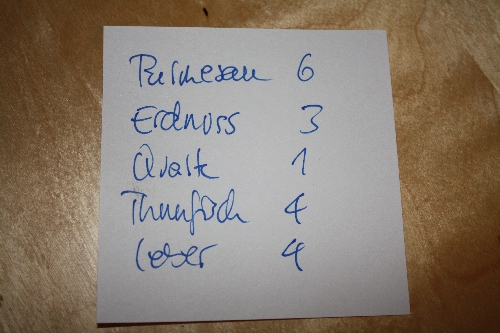 Parmesan 6
Erdnuss 3
Quark 1
Thunfisch 4
Leber 4